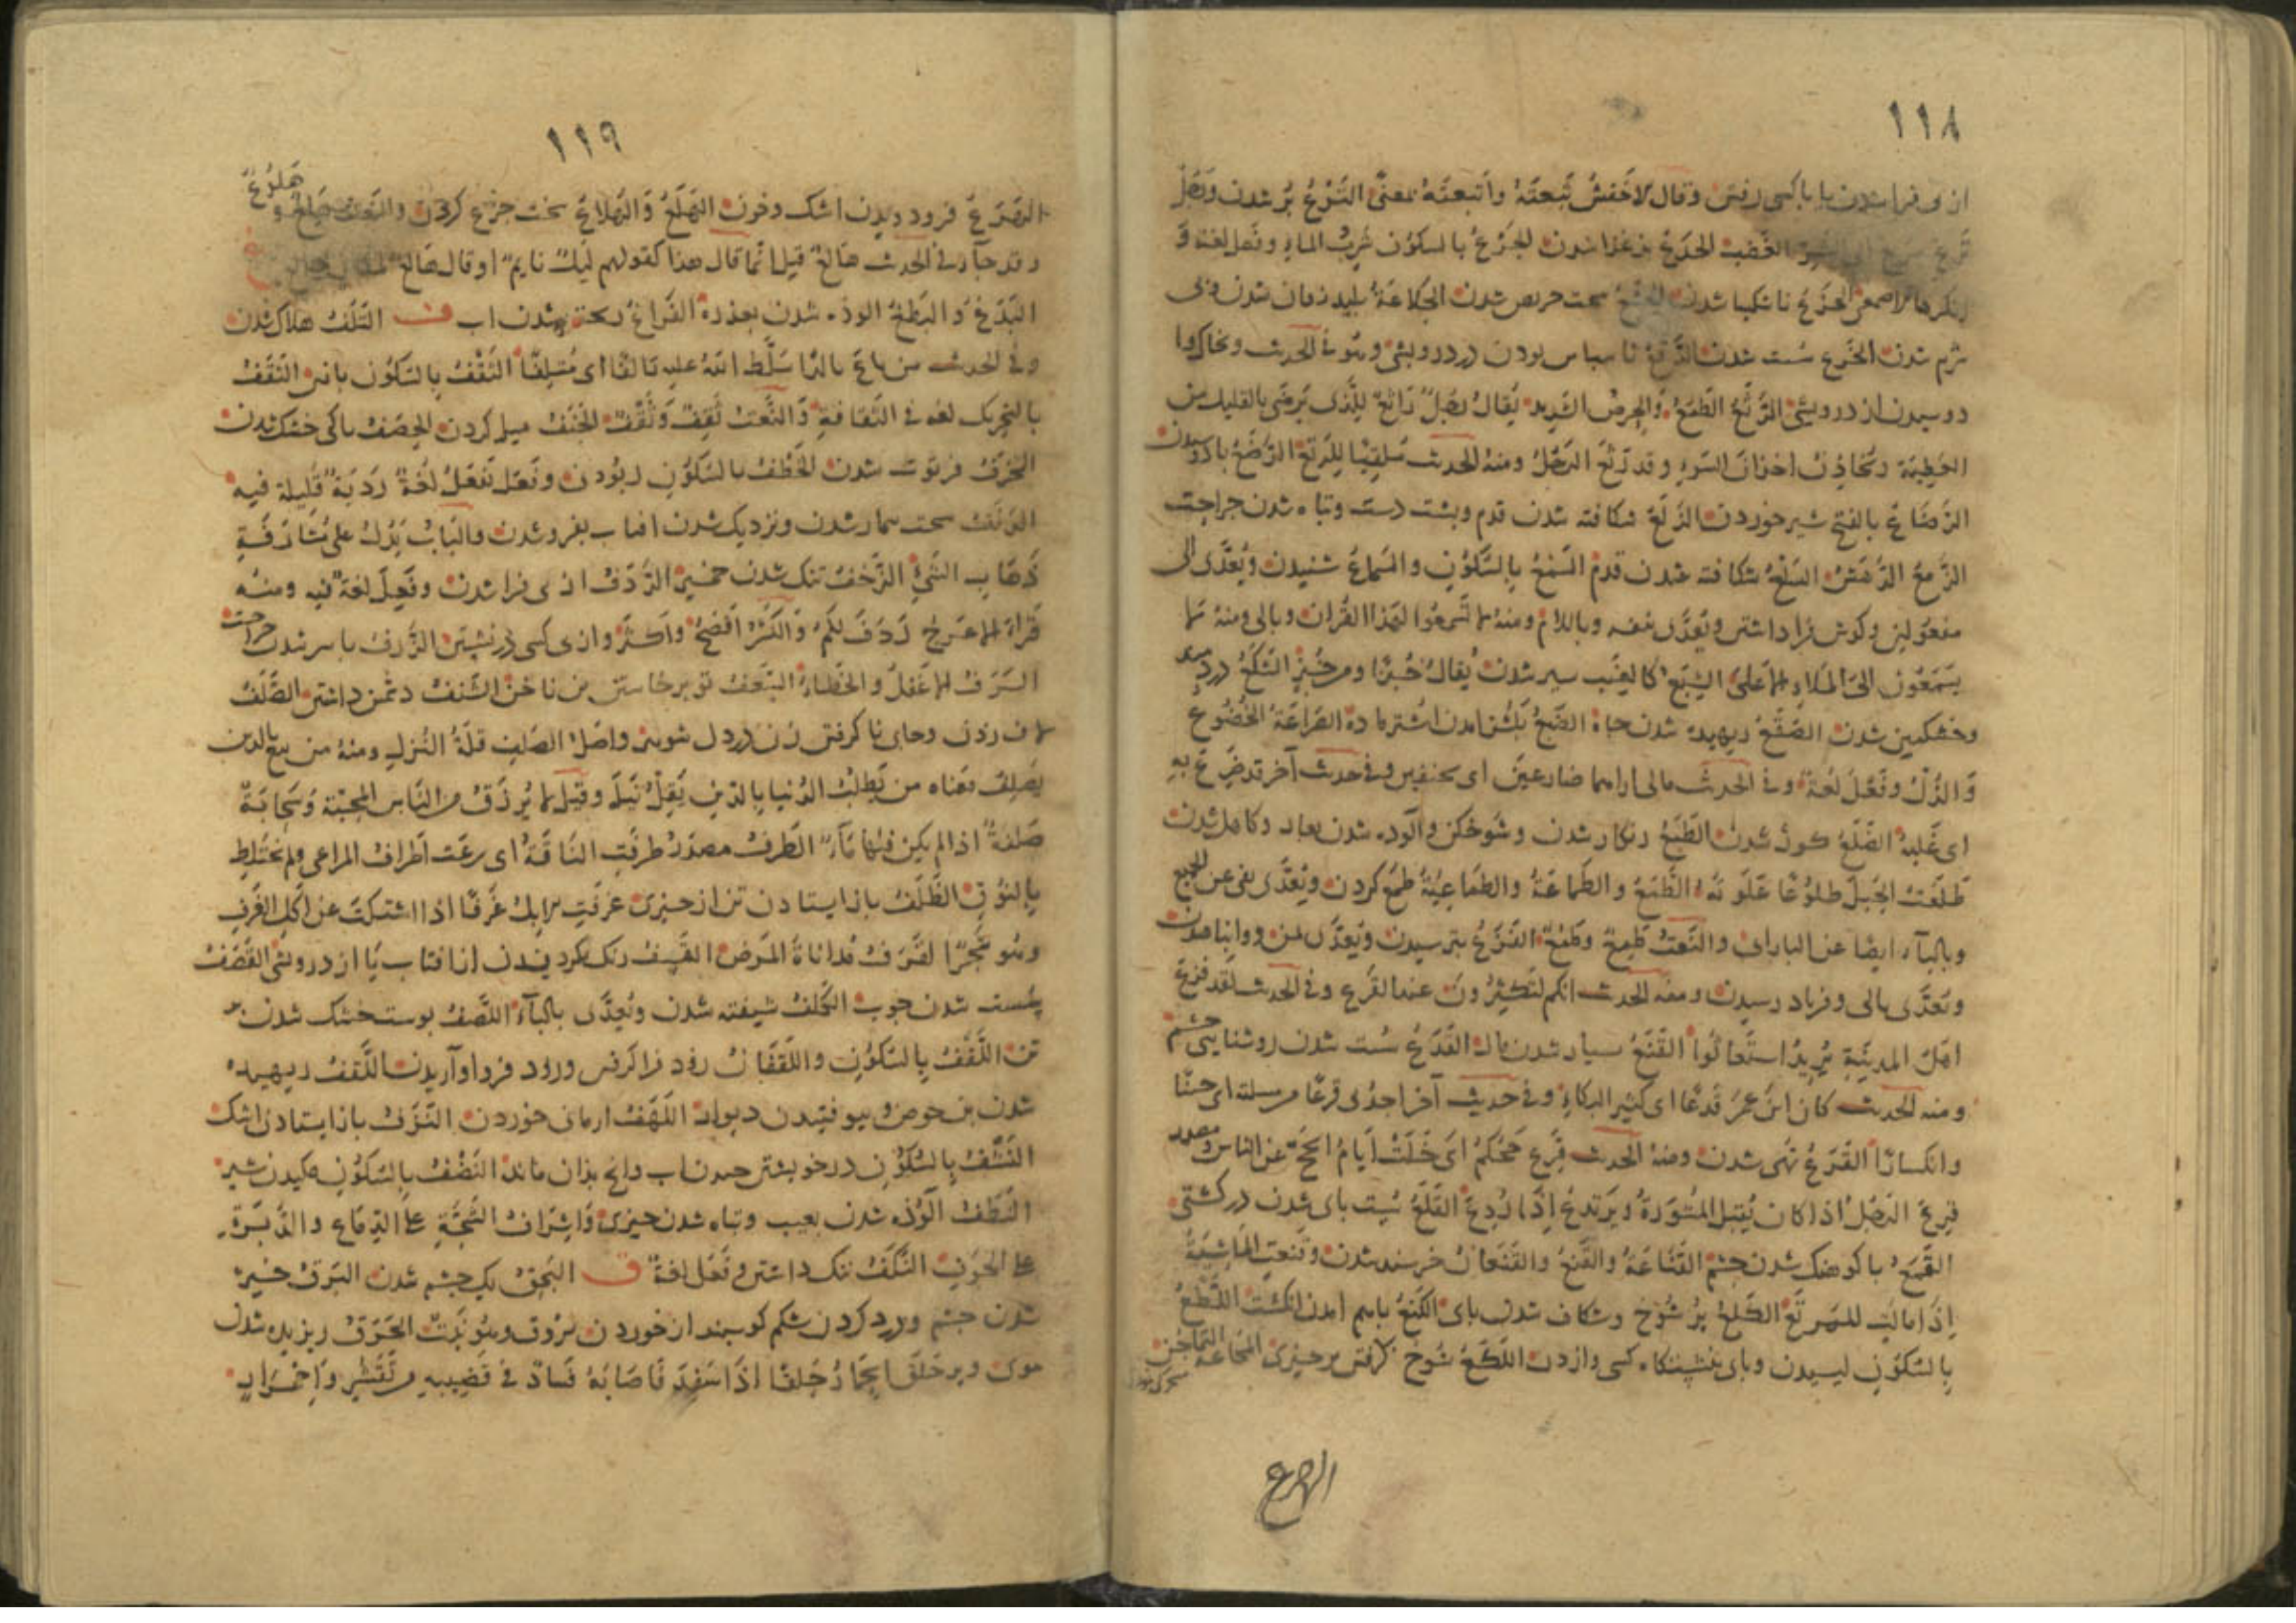 ١١٨
از پی فرا شدن یا با کسی رفتن وقال الاخفش تبعته واتبعته بمعنی التَّرَعُ پر شدن ورجل
تَرِعٌ سریع الی الشر والغضب الجَدَعُ بد غذا شدن الجَرْعُ بالسکون شرب الماء وفعل لغة و
انکرها الاصمعی الجَزَعُ ناشکیبا شدن الجَشَعُ سخت حریص شدن الجَلاعَةُ پلید زبان شدن وبی
شرم شدن الخَرَعُ سست شدن الدَّقَعُ نا سپاس بودن در درویشی وهو فی الحدیث وبخاک وا
دوسیدن از درویشی الرَّثَعُ الطمع والحرص الشدید یقال رجل راثع للذی یرضی بالقلیل من
العطیة ویخادن اخدان السوء وقد رثع الرجل ومنه الحدیث ملقیا للرثع الرَّصَعُ باز دوسیدن
الرَّضاعُ بالفتح شیر خوردن الزَّلَعُ شکافته شدن قدم وپشت دست وتباه شدن جراحت
الزَّمَعُ الدَّهَش السَّلَعُ شکافته شدن قدم السَّمْعُ بالسکون والسَّماعُ شنیدن ویعدی الی
مفعولین وگوش فرا داشتن ویعدی بنفسه وباللام ومنه لا تسمعوا لهذا القران وبالی ومنه لا
یسّمعون الی الملاء الاعلی الشِّبَعُ کالعنب سیر شدن یقال خبزا ومن خبز الشَّکَعُ دردمند
وخشمگین شدن الصَّقَعُ ریهیده شدن چاه الضَّبَعُ بگشن آمدن اشتر ماده الضَّراعَةُ الخضوع
والذل وفعل لغة وفی الحدیث مالی اراهما ضارعین ای نحیفین وفی حدیث آخر قد ضرع به
ای غلبه الضَّلَعُ کوژ شدن الطَّبَعُ زنگار شدن وشوخگن وآلوده شدن بعار وکاهل شدن
طلعت الجبل طلوعا علوته الطَّمَعُ والطَّماعَةُ والطَّماعِیَةُ طمع کردن ویعدی بفی عن الجمیع
وبالباء ایضا عن البارابی والنعت طمع وطمع الفَزَعُ بترسیدن ویعدی بمن ووا پناهیدن
ویعدی بالی وفریاد رسیدن ومنه الحدیث انکم لتکثرون عند الفزع وفی الحدیث لقد فزع
اهل المدینة یرید استغاثوا القَنَعُ بسیار شدن مال القَدَعُ سست شدن روشنایی چشم
ومنه الحدیث کان ابن عمر قدعا ای کثیر البکاء وفی حدیث آخر اجدنی قدعا من مسئلته ای جبنا
وانکسارا القَرَعُ تهی شدن ومنه الحدیث قرع حجکم ای خلت ایام الحج عن الناس ومصدر
قرع الرجل اذا کان یقبل المشورة ویرتدع اذا ردع القَلَعُ نیست پای شدن در کشتی
القَمَعُ با کوهنک شدن چشم القَناعَةُ والقَنَعُ والقُنْعانُ خرسند شدن وقنعت الماشیة
اذا مالت للمرتع الکَلَعُ پر شوخ وشکافته شدن پای الکَنَعُ باهم آمدن انگشت اللَّطْعُ
بالسکون لیسیدن وپای بنشستگاه کسی وازدن اللَّکَعُ شوخ گرفتن بر چیزی المَجاعَةُ التماجن
الهرع
١١٩
الهَرَعُ فرود ویدن اشک وخون الهَلَعُ والهُلاعُ سخت جزع کردن والنعت هلع و
هلوع
وقد جاء فی الحدیث هالع قیل انما قال هذا کقولهم لیل نایم او قال هالع
البَدَغُ والبَطَغُ آلوذه شدن بعذرة الفَراغُ ریخته شدن آب ف التَّلَفُ هلاک شدن
وفی الحدیث من باع دارا سلط الله علیه تالفا ای متلفا الثَّقْفُ بالسکون یافتن الثَّقَفُ
بالتحریک لغة فی الثقافة والنعت ثقف وثقف الجَنَفُ میل کردن الحَصَفُ با کی خشک شدن
الخَرَفُ فرتوت شدن الخَطْفُ بالسکون ربودن وفعل یفعل لغة ردیة قلیلة فیه
الدَّنَفُ سخت بیمار شدن ونزدیک شدن آفتاب بفرو شدن والباب یدل علی مشارفة
ذهاب الشیء الرَّخَفُ تنک شدن خمیر الرَّدَفُ از پی فرا شدن وفعل لغة فیه ومنه
قراة الاعرج ردف لکم والکسر افصح واکثر واز پی کسی در نشستن الزَّرَفُ با سر شدن جراحت
السَّرَفُ الاغفال والخطاء السَّعَفُ تو برخاستن بن ناخن الشَّنَفُ دشمن داشتن الصَّلَفُ
لاف زدن وجای نا گرفتن زن در دل شوی واصل الصلف قلة النزل ومنه من یبغ بالدین
یصلف معناه من یطلب الدنیا بالدین یقل نیله وقیل لا یرزق من الناس المحبة وسحابة
صلفة اذا لم یکن فیها ماء الطَّرَفُ مصدر طرفت الناقة ای رعت اطراف المراعی ولم تختلط
بالنوق الظَّلَفُ باز ایستادن تن از چیزی غرفت الابل غرفا اذا اشتکت عن اکل الغرف
وهو شجر القَرَفُ مداناة المرض القَشَفُ رنک بگردیدن از آفتاب یا از درویشی القَصَفُ
سست شدن چوب الکَلَفُ شیفته شدن ویعدی بالباء اللَّصَفُ پوست خشک شدن بر
تن اللَّقْفُ بالسکون واللَّقَفانُ زود فرا گرفتن وزود فرو اواریدن اللَّقَفُ ریهیده
شدن بن حوض وبیوفتیدن دیواره اللَّهَفُ ارمان خوردن النَّزَفُ باز ایستادن اشک
النَّشْفُ بالسکون در خویشتن چیدن آب وانچ بذان ماند النَّضْفُ بالسکون مکیدن شیر
النَّطَفُ آلوذه شدن بعیب وتباه شدن چیزی واشراف الشجة علی الدماغ والدبرة
علی الجوف النَّکَفُ ننک داشتن وفعل لغة ق البَخَقُ یک چشم شدن البَرَقُ خیره
شدن چشم ودرد کردن شکم گوسپند از خوردن بروق وهو نبت الحَرَقُ ریزیده شدن
موی وپر حلق الحمار حلقا اذا سفد فاصابه فساد فی قضیبه من تقشر واحمرار